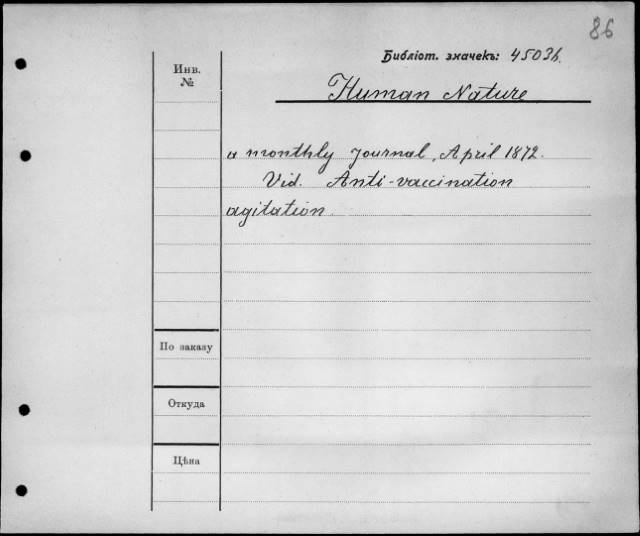 86
Библіот. значекъ: 4503b.
Инв.
№
Human Nature
a monthly journal, April 1872.
Vid. Anti-vaccination
agitation.
По заказу
Откуда
Цѣна